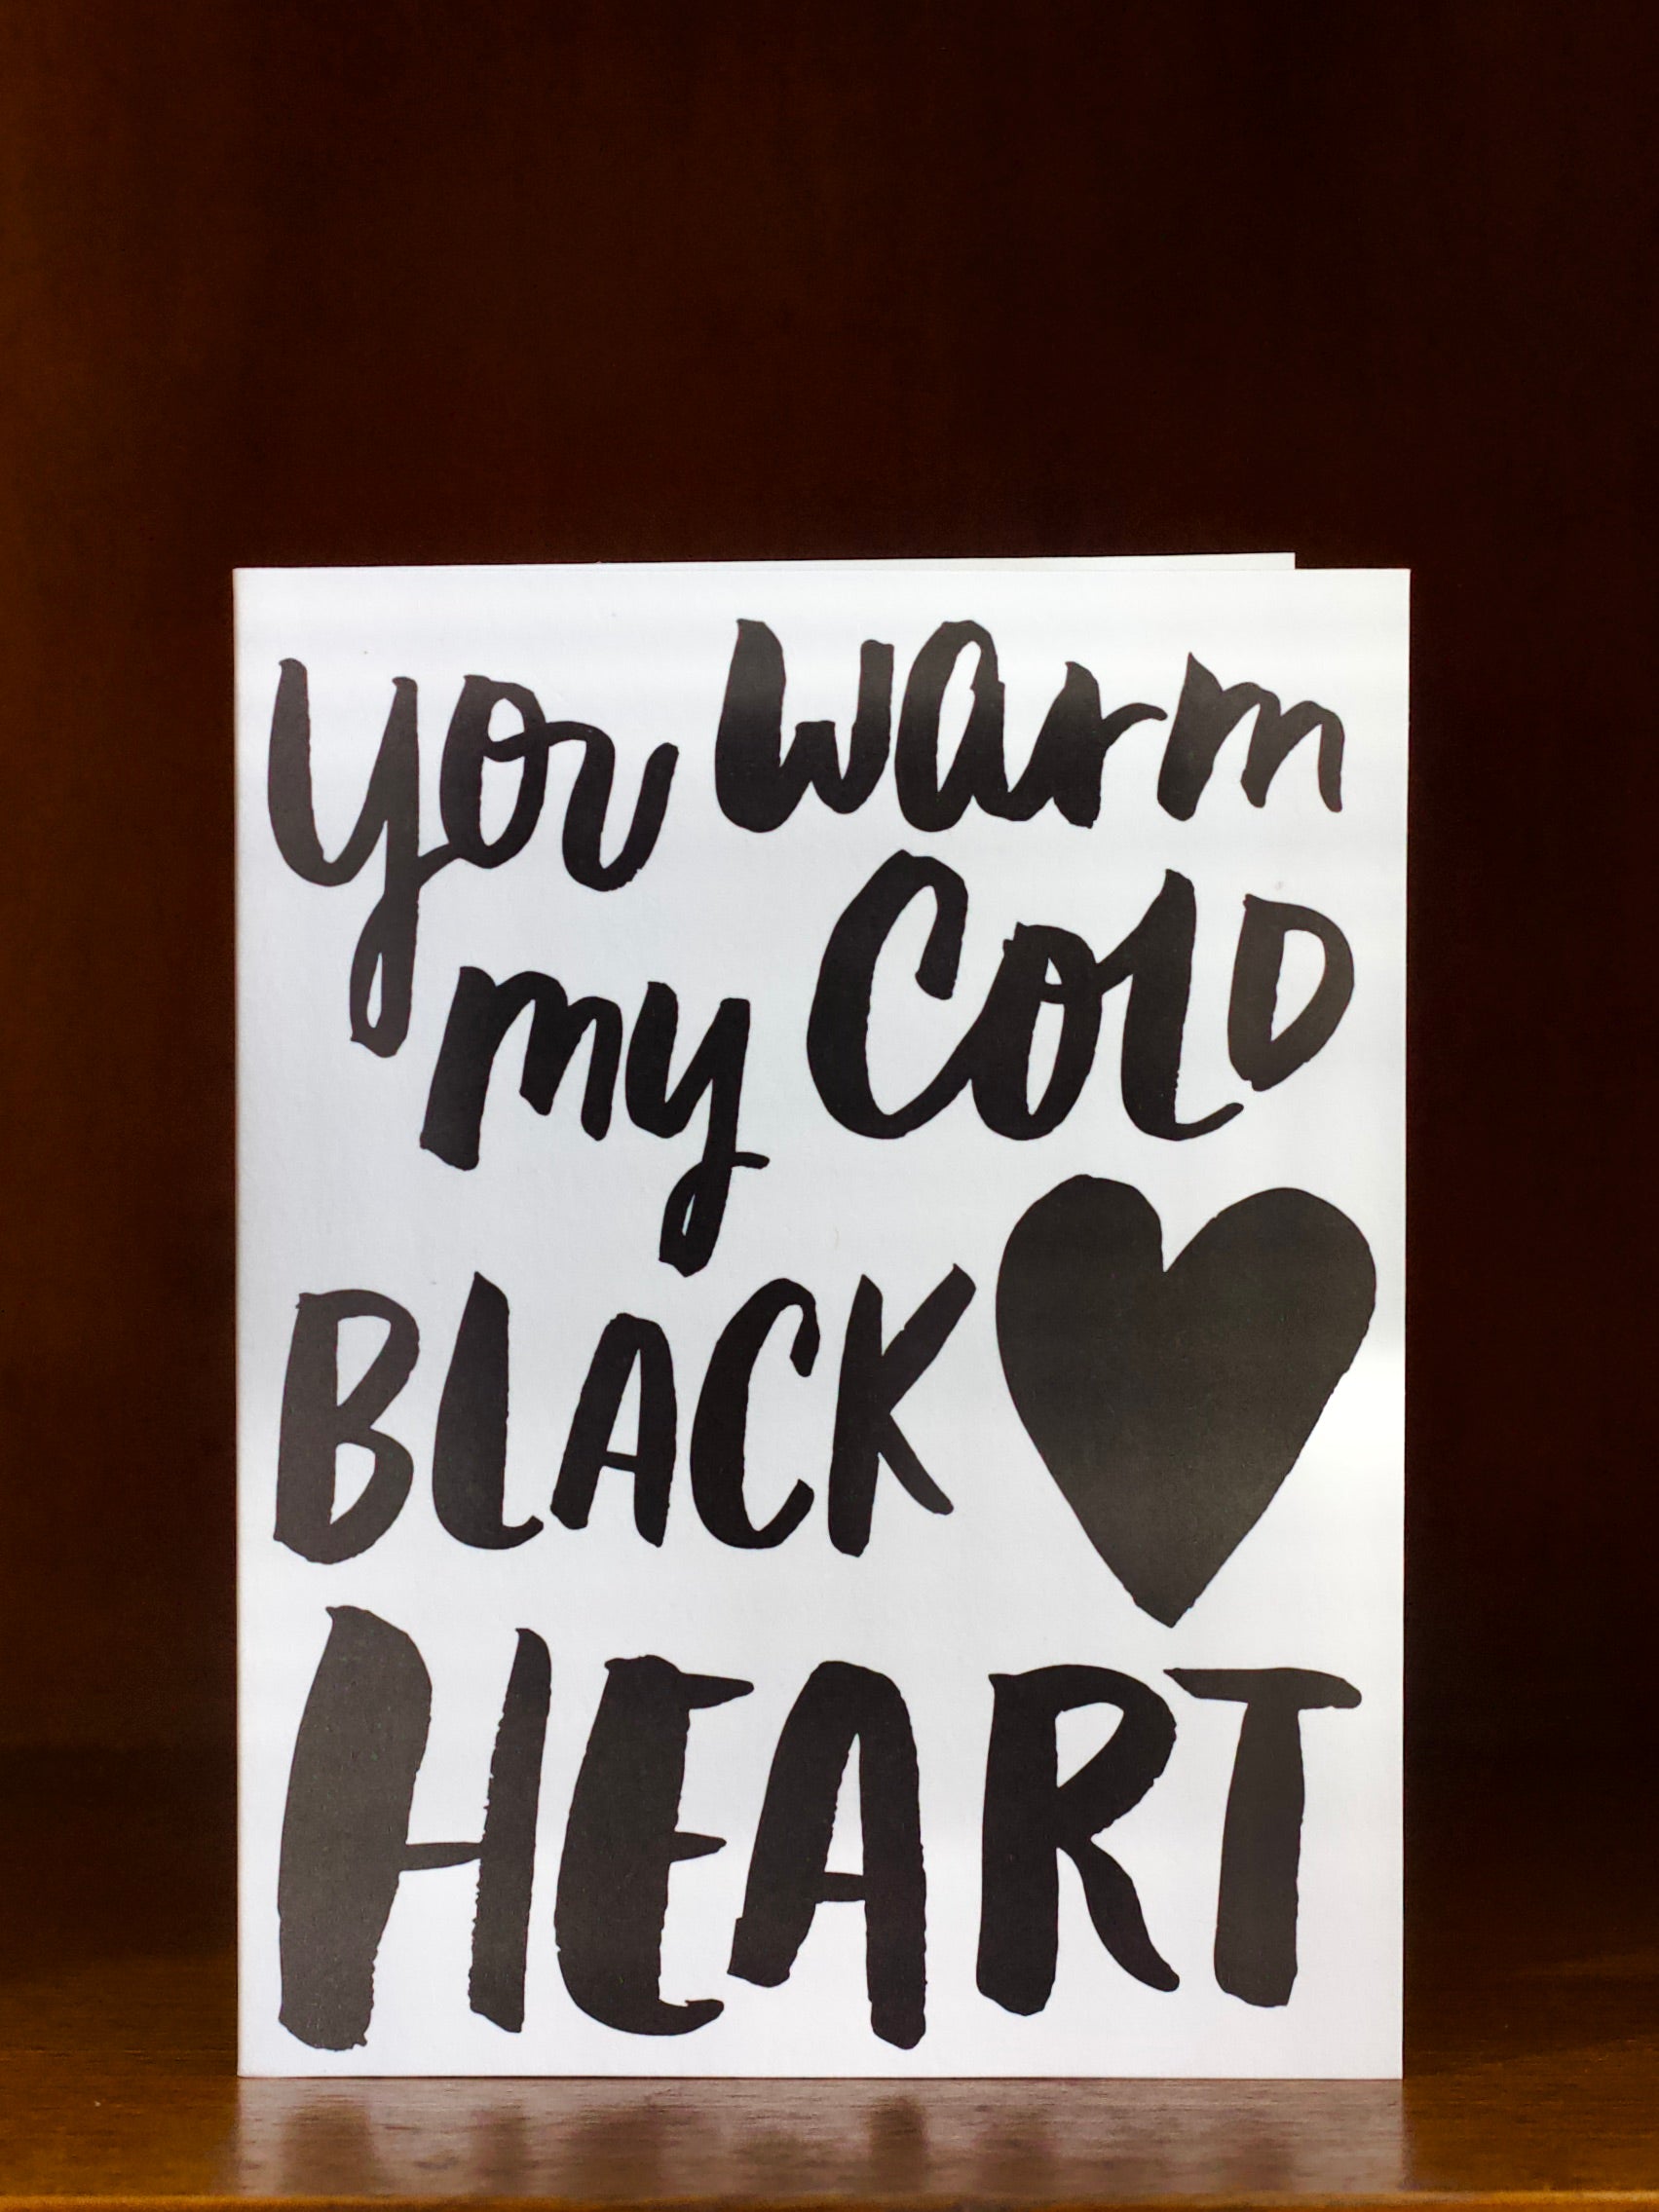 you warm
my Cold
BLACK
HEART